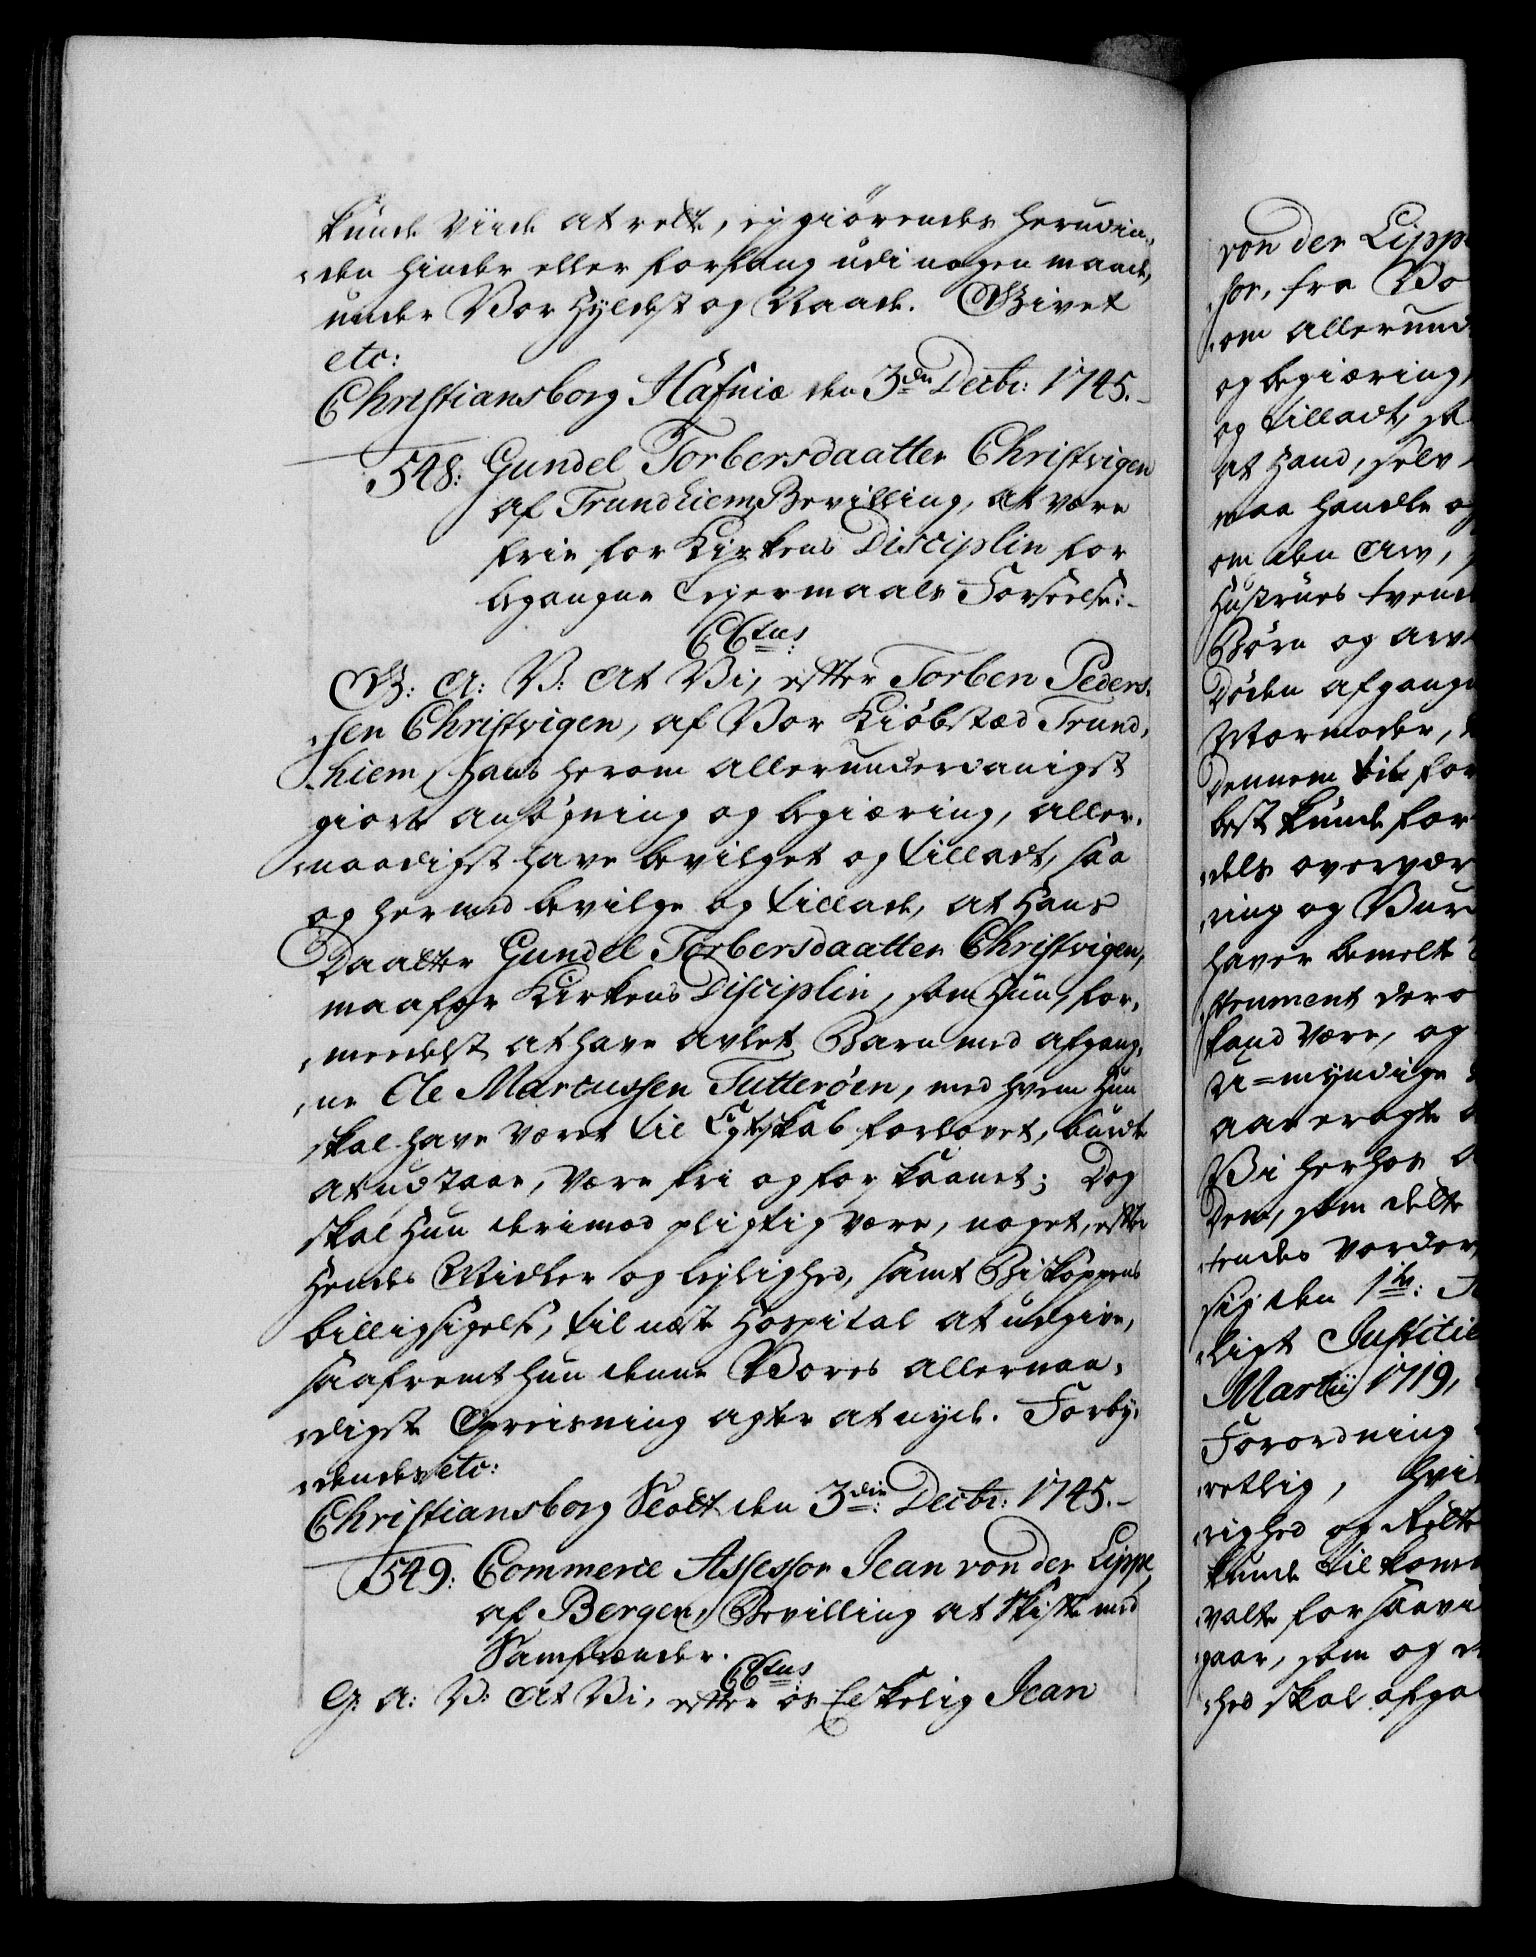 kunde viide at rette, ej giörendes herudin-
den hinder eller forfang udi nogen maade,
under Vor Hyldest og Naade. Givet
etc:
Christiansborg Hafniæ den 3die Decbr: 1745.
548: Gundel Torbersdaatter Christvigen
af Trundhiem, Bevilling, at være
frie for Kirkens Disciplin for
begangne Lejermaals Forseelse:
C Ctus
G: A: V: At Vi, efter Torben Peders-
sen Christvigen, af Vor Kiöbstæd Trund-
hiem, hans herom allerunderdanigst
giorte ansögning og begiæring, aller-
naadigst have bevilget og tilladt, saa
og hermed bevilge og tillade, at Hans
Daatter Gundel Torbersdaatter Christvigen,
maa for Kirkens Disciplin, som Hun, for-
meedelst at have avlet Barn med afgang-
ne Ole Marcussen Tutteröen, med hvem Hun
skal have været til Egteskab forlovet, burde
at udstaae, være fri og forskaanet; Dog
skal Hun derimod pligtig være, noget, efter
Hendes Midler og lejlighed, samt Biskoppens
billigsigelse, til næste Hospital at udgive,
saafremt hun denne Vores allernaa-
digste Opreisning agter at nyde. Forby-
dendes etc:
Christiansborg Slott den 3die: Decbr: 1745.
549: Commerce Assessor Jean von der Lippe,
af Bergen, Bevilling at skifte med
Samfrænder.
C Ctus
G: A: V: At Vi, efter os Elskelig Jean
von der Lipp
sor, fra Bo
om allerund
og begiæring,
og tilladt, sa
at Hand, selv
maa handle og
om den Arv,
Hustrues tvend
Börn og arv
Döden afgang
Mormoder,
Dennem til for
best kunde for
dels overvær
ring og Vur
haver bemelte
strument der o
kand være, og
U=myndige
aarerogte
Vi herhos
Dem, som dette
tendes vorder,
sig den 1ste:
ligt Justitie
Martij 1719,
Forordning
retlig, hvi
righed og Rette
kunde tilkom
valte forsaavi
gaar, som og
hed skal afga